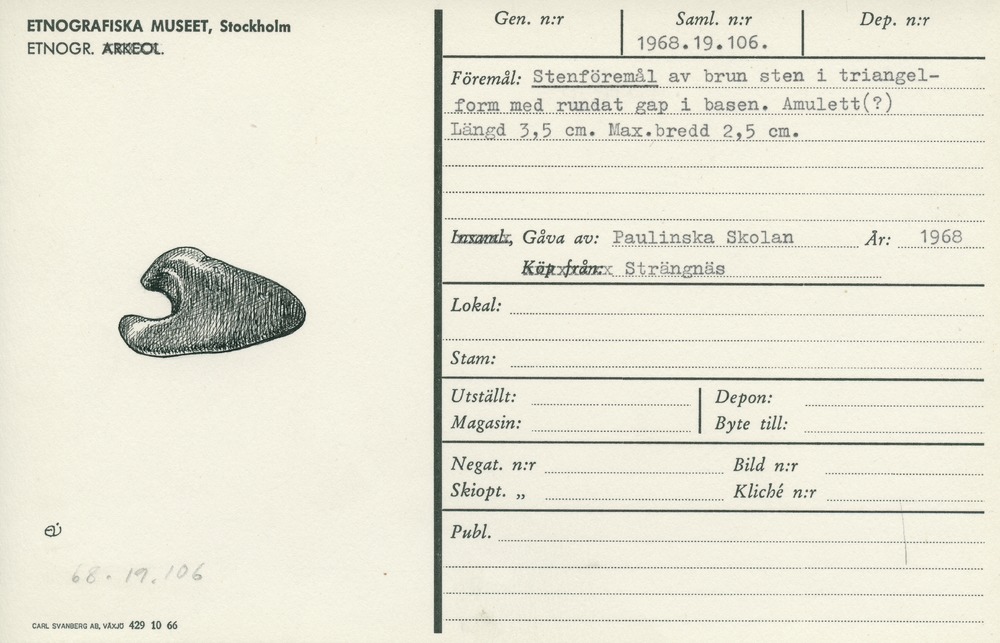 ETNOGRAFISKA MUSEET, Stockholm
ETNOGR. ARKEOL.
68.19.106
CARL SVANBERG AB, VÄXJÖ 429 10 66
Gen. n:r
Saml. n:r
Dep. n:r
1968.19.106.
Föremål: Stenföremål av brun sten i triangel-
form med rundat gap i basen. Amulett(?)
Längd 3,5 cm. Max.bredd 2,5 cm.
Insaml., Gåva av: Paulinska Skolan År: 1968
Köp från: Strängnäs
Lokal:
Stam:
Utställt: Depon:
Magasin: Byte till:
Negat. n:r Bild n:r
Skiopt. „ Kliché n:r
Publ.